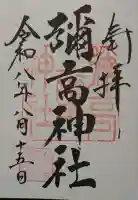 奉拝
彌高神社
令和八年八月十五日